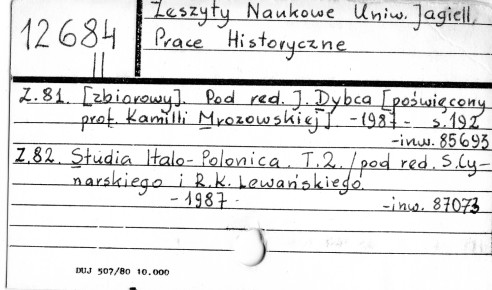 12684
||
Zeszyty Naukowe Uniw. Jagiell.
Prace Historyczne
Z.81. [zbiorowy]. Pod red. J. Dybca [poświęcony
prof. Kamilli Mrozowskiej]. -1987- s.192
-inw. 85693
Z.82. Studia Italo-Polonica. T.2. /pod red. S.Cy-
narskiego i R.K. Lewańskiego.
-1987-
-inw. 87073
DUJ 507/80 10.000